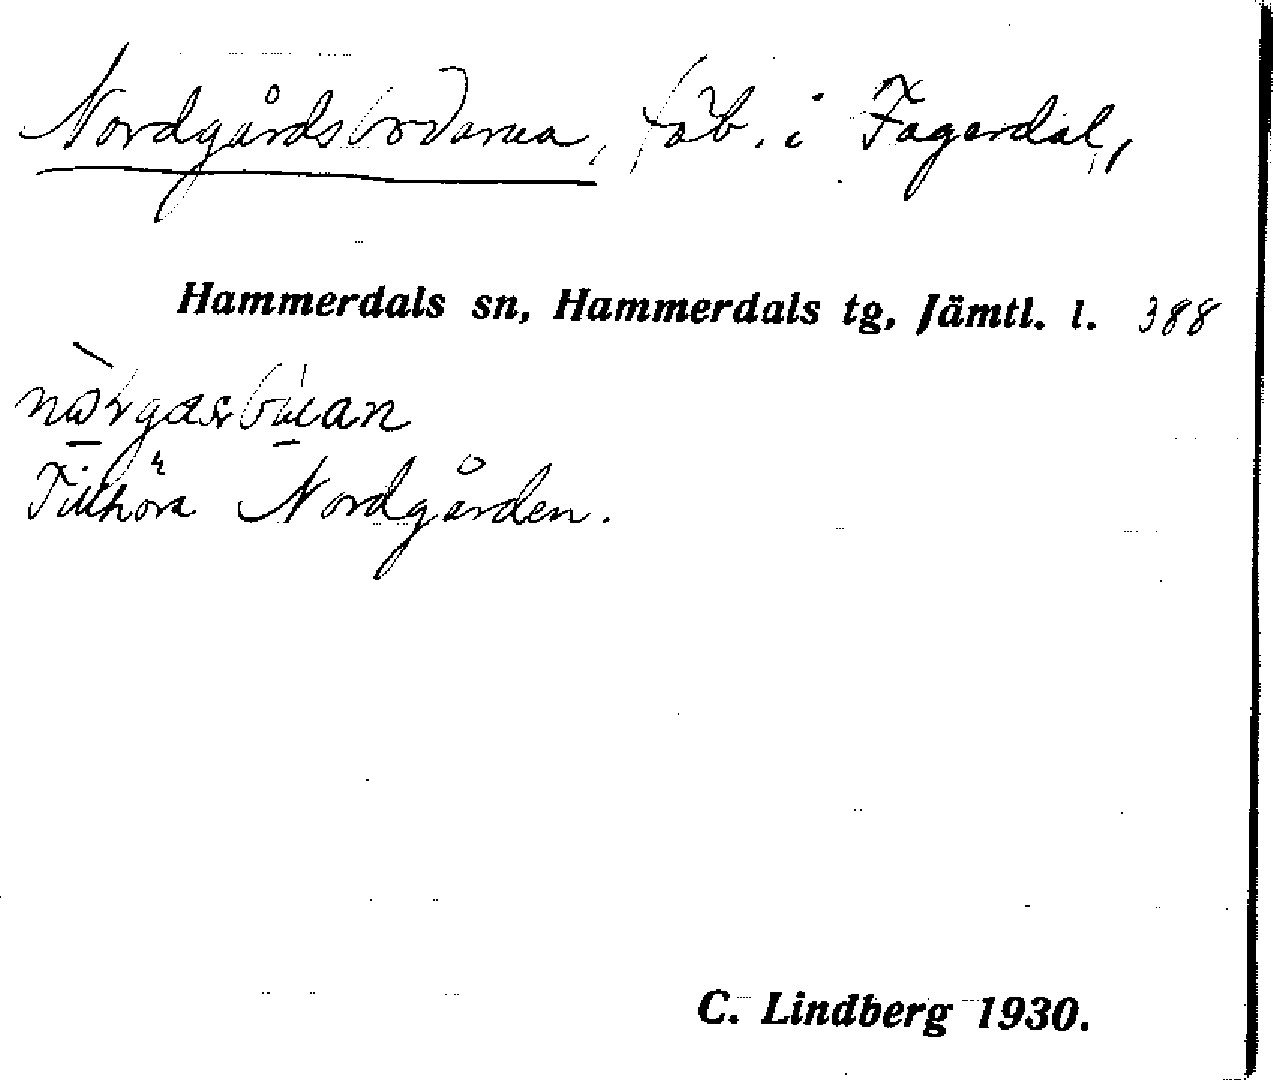 Nordgårdsbodarna, fäb. i Fagerdal,
Hammerdals sn, Hammerdals tg, Jämtl. l. 388
Tillhöra Nordgården.
C. Lindberg 1930.